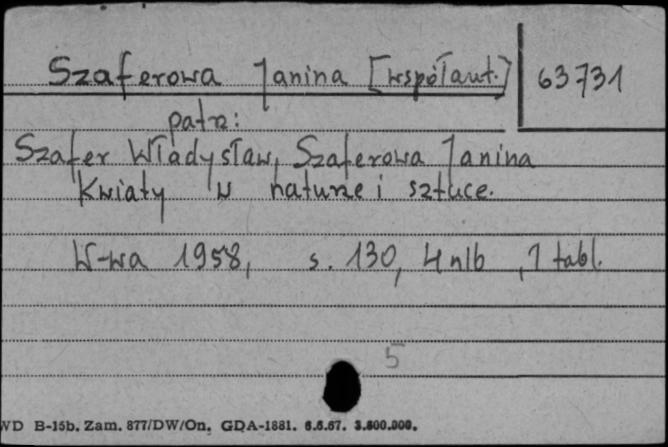 Szaferowa Janina [współaut.] 63731
patrz:
Szafer Władysław, Szaferowa Janina
Kwiaty w naturze i sztuce.
W-wa 1958, s. 130, 4 nlb, 1 tabl.
5
WD B-15b. Zam. 877/DW/On. GDA-1881. 6.6.67. 3.600.000.